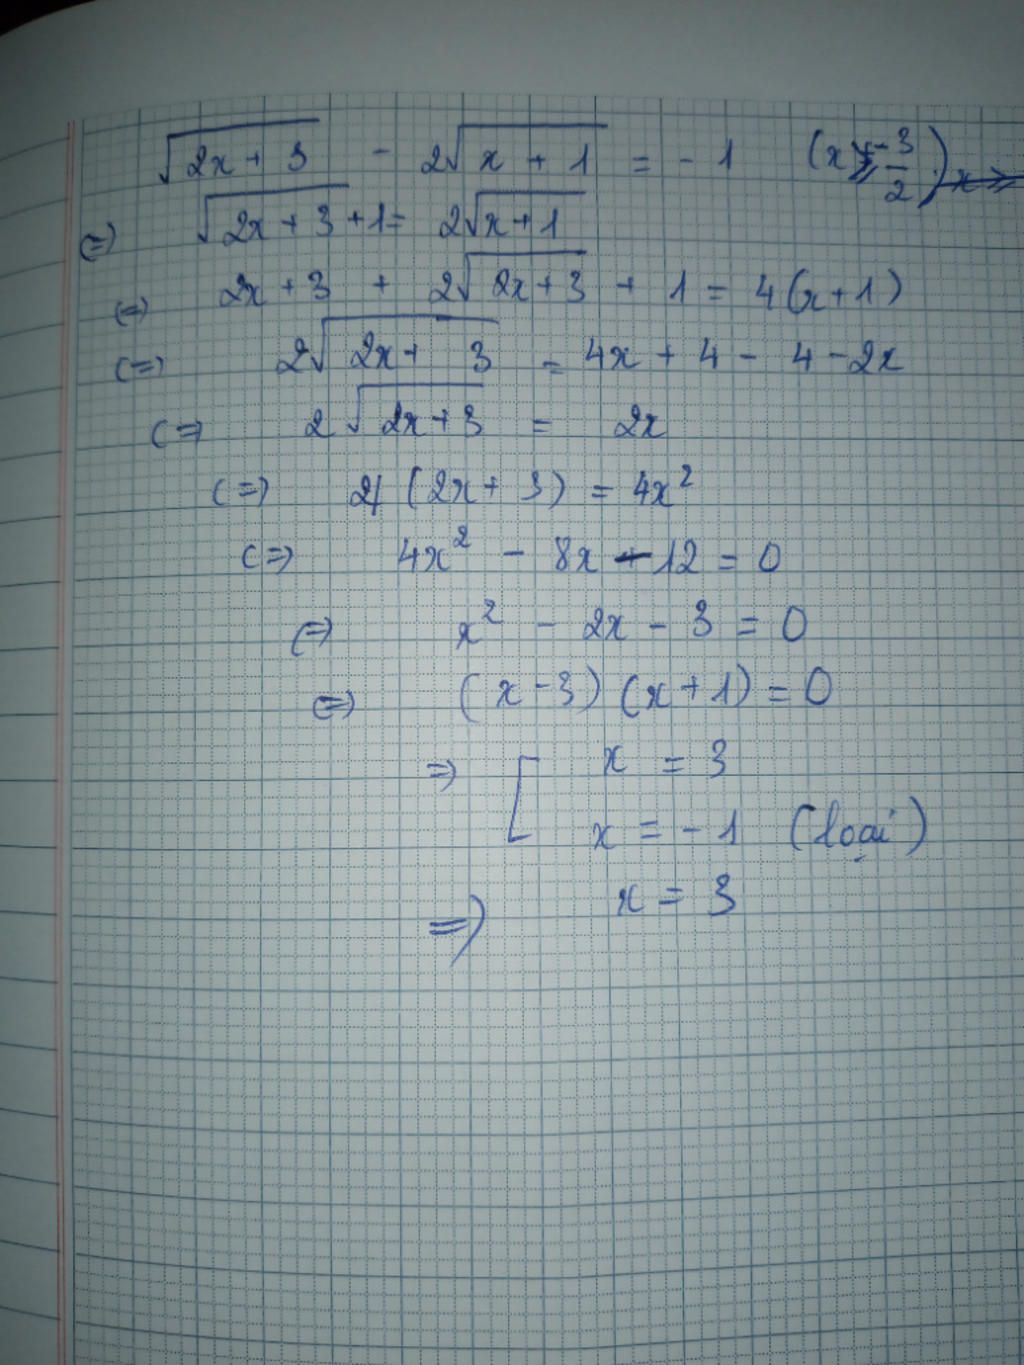 √(2x + 3) - 2√(x + 1) = - 1 (x ≥ -3/2)
(=) √(2x + 3) + 1 = 2√(x + 1)
(=) 2x + 3 + 2√(2x + 3) + 1 = 4(x + 1)
(=) 2√(2x + 3) = 4x + 4 - 4 - 2x
(=) 2√(2x + 3) = 2x
(=) 4 (2x + 3) = 4x²
(=) 4x² - 8x - 12 = 0
(=) x² - 2x - 3 = 0
(=) (x - 3) (x + 1) = 0
=) [ x = 3
x = - 1 (loại)
=) x = 3